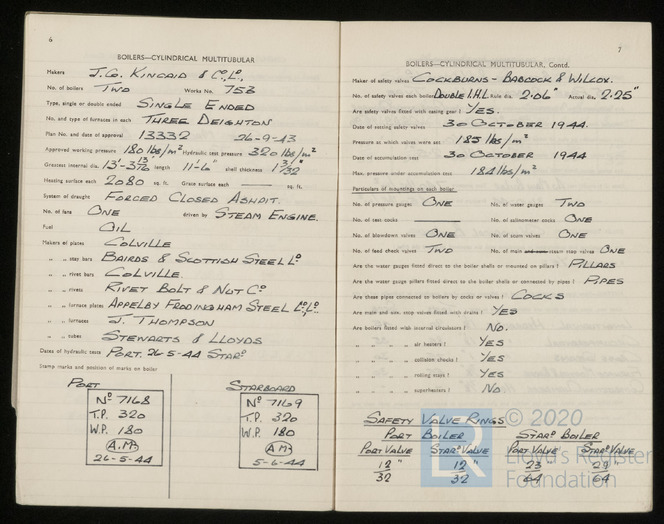 6
BOILERS—CYLINDRICAL MULTITUBULAR
Makers J.G. KINCAID & Co. Lo.
No. of boilers TWO Works No. 753
Type, single or double ended SINGLE ENDED
No. and type of furnaces in each THREE DEIGHTON
Plan No. and date of approval 13332 26-9-43
Approved working pressure 180 lbs/in² Hydraulic test pressure 320 lbs/in²
Greatest internal dia. 13'-3 13/16" length 11'-6" shell thickness 1 3/32"
Heating surface each 2080 sq. ft. Grate surface each — sq. ft.
System of draught FORCED CLOSED ASHPIT.
No. of fans ONE driven by STEAM ENGINE.
Fuel OIL
Makers of plates COLVILLE
„ „ stay bars BAIRDS & SCOTTISH STEEL Lo
„ „ rivet bars COLVILLE
„ „ rivets RIVET BOLT & NUT Co
„ „ furnace plates APPELBY FRODINGHAM STEEL Co. Lo.
„ „ furnaces J. THOMPSON
„ „ tubes STEWARTS & LLOYDS
Dates of hydraulic tests PORT. 26-5-44 STARD
Stamp marks and position of marks on boiler
PORT
No 7168
T.P. 320
W.P. 180
A.M.
26-5-44
STARBOARD
No 7169
T.P. 320
W.P. 180
A.M.
5-6-44
7
BOILERS—CYLINDRICAL MULTITUBULAR, Contd.
Maker of safety valves COCKBURNS - BABCOCK & WILCOX.
No. of safety valves each boiler DOUBLE I.H.L. Rule dia. 2.06" Actual dia. 2.25"
Are safety valves fitted with easing gear? YES.
Date of setting safety valves 30 OCTOBER 1944.
Pressure at which valves were set 185 lbs/in²
Date of accumulation test 30 OCTOBER 1944
Max. pressure under accumulation test 184 lbs/in²
Particulars of mountings on each boiler
No. of pressure gauges ONE No. of water gauges TWO
No. of test cocks — No. of salinometer cocks ONE
No. of blowdown valves ONE No. of scum valves ONE
No. of feed check valves TWO No. of main steam stop valves ONE
Are the water gauges fitted direct to the boiler shells or mounted on pillars? PILLARS
Are the water gauge pillars fitted direct to the boiler or connected by pipes? PIPES
Are these pipes connected to boilers by cocks or valves? COCKS
Are main and aux. stop valves fitted with drains? YES
Are boilers fitted with internal circulators? NO.
„ „ „ „ air heaters? YES
„ „ „ „ collision chocks? YES
„ „ „ „ rolling stays? YES
„ „ „ „ superheaters? NO
SAFETY VALVE RINGS
PORT BOILER STARD BOILER
PORT VALVE STARD VALVE PORT VALVE STARD VALVE
12/32" 12/32" 23/64 29/64
© 2020
LR
Lloyd's Register
Foundation